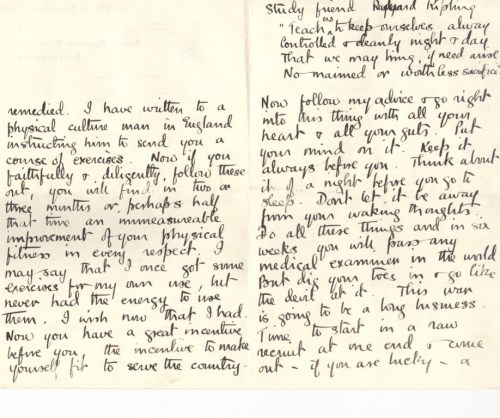 remedied. I have written to a
physical culture man in England
instructing him to send you a
course of exercises. Now if you
faithfully & diligently follow these
out, you will find in two or
three months or perhaps half
that time an immeasureable
improvement of your physical
fitness in every respect. I
may say that I once got some
exercises for my own use, but
never had the energy to use
them. I wish now that I had.
Now you have a great incentive
before you, the incentive to make
yourself fit to serve the country.
Study friend Rudyard Kipling
"Teach us to keep ourselves alway
Controlled & cleanly night & day
That we may bring, if need arise
No maimed or worthless sacrifice
Now follow my advice & go right
into this thing with all your
heart & all your guts. Put
your mind on it. Keep it
always before you. Think about
it of a night before you go to
sleep. Dont let it be away
from your waking thoughts.
Do all these things and in six
weeks you will pass any
medical examiner in the world
But dig your toes in & go like
the devil at it. This war
is going to be a long business.
Time to start in a raw
recruit at one end & come
out - if you are lucky - a